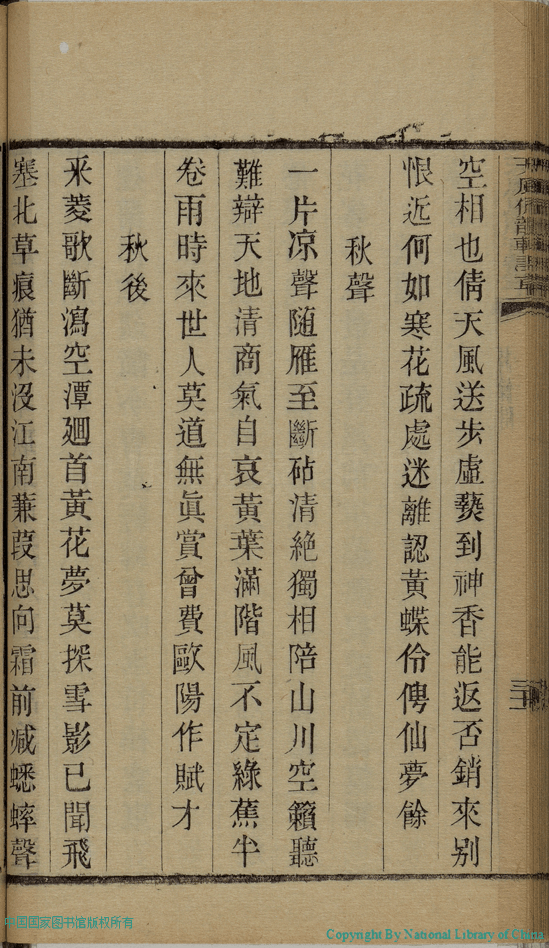 空相也倩天風送步虛發到神香能返否銷來别
恨近何如寒花疏處迷離認黃蝶伶俜仙夢餘
秋聲
一片凉聲随雁至斷砧清絶獨相陪山川空籟聽
難辯天地清商氣自哀黃葉滿階風不定綠蕉半
卷雨時來世人莫道無眞賞曾費歐陽作賦才
秋後
采菱歌斷瀉空潭廻首黃花夢莫探雪影已聞飛
塞北草痕猶未沒江南蒹葭思向霜前减蟋蟀聲
中国国家图书馆版权所有
Copyright By National Library of China